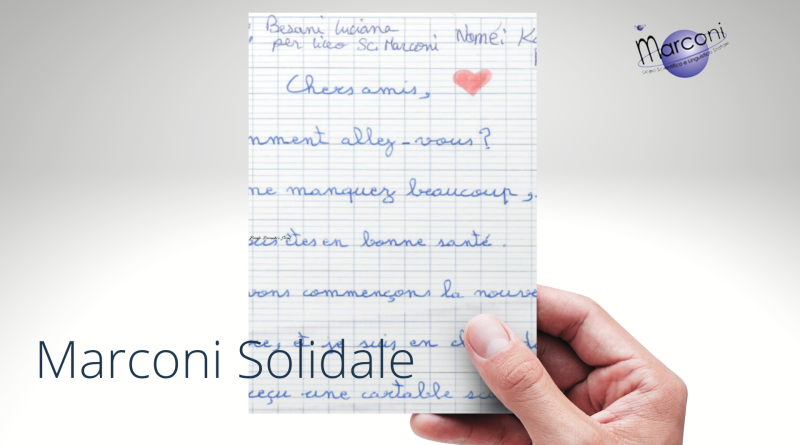 Besani Luciana
per liceo Sc. Marconi
Nome: K
Chers amis,
mment allez-vous?
me manquez beaucoup,
êtes en bonne santé.
vons commençons la nouve
et je suis en c
eçu une cartable
Marconi Solidale
Marconi
Liceo Scientifico e Linguistico Statale